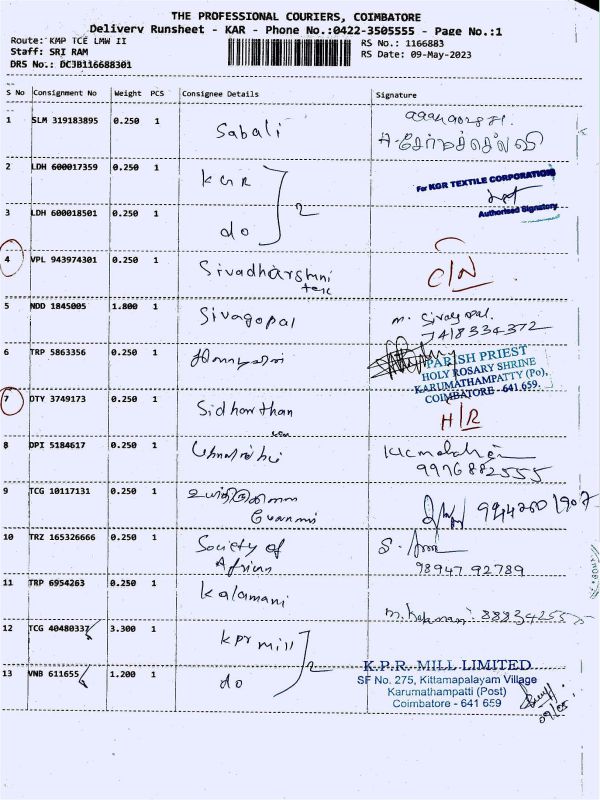 THE PROFESSIONAL COURIERS, COIMBATORE
Delivery Runsheet - KAR - Phone No.:0422-3505555 - Page No.:1
Route: KMP TCE LMW II
Staff: SRI RAM
DRS No.: DCJB116688301
RS No.: 1166883
RS Date: 09-May-2023
S No Consignment No Weight PCS Consignee Details Signature
1 SLM 319183895 0.250 1 Sabali
2 LDH 600017359 0.250 1 KGR
For KGR TEXTILE CORPORATION
Authorised Signatory
3 LDH 600018501 0.250 1 do 2
4 VPL 943974301 0.250 1 Sivadharshni
tex
5 NDD 1845005 1.800 1 Sivagopal m. Sivagopal.
7418334372
6 TRP 5863356 0.250 1
PARISH PRIEST
HOLY ROSARY SHRINE
KARUMATHAMPATTY (Po),
COIMBATORE - 641 659.
7 DTY 3749173 0.250 1 Sidharthan H/R
8 DPI 5184617 0.250 1
9976882555
9 TCG 10117131 0.250 1
10 TRZ 165326666 0.250 1 Society of
African
98947 92789
11 TRP 6954263 0.250 1 Kalamani m. Kalamani.
12 TCG 40480337 3.300 1 kpr mill
13 VNB 611655 1.200 1 do 2
K.P.R. MILL LIMITED
SF No. 275, Kittamapalayam Village
Karumathampatti (Post)
Coimbatore - 641 659